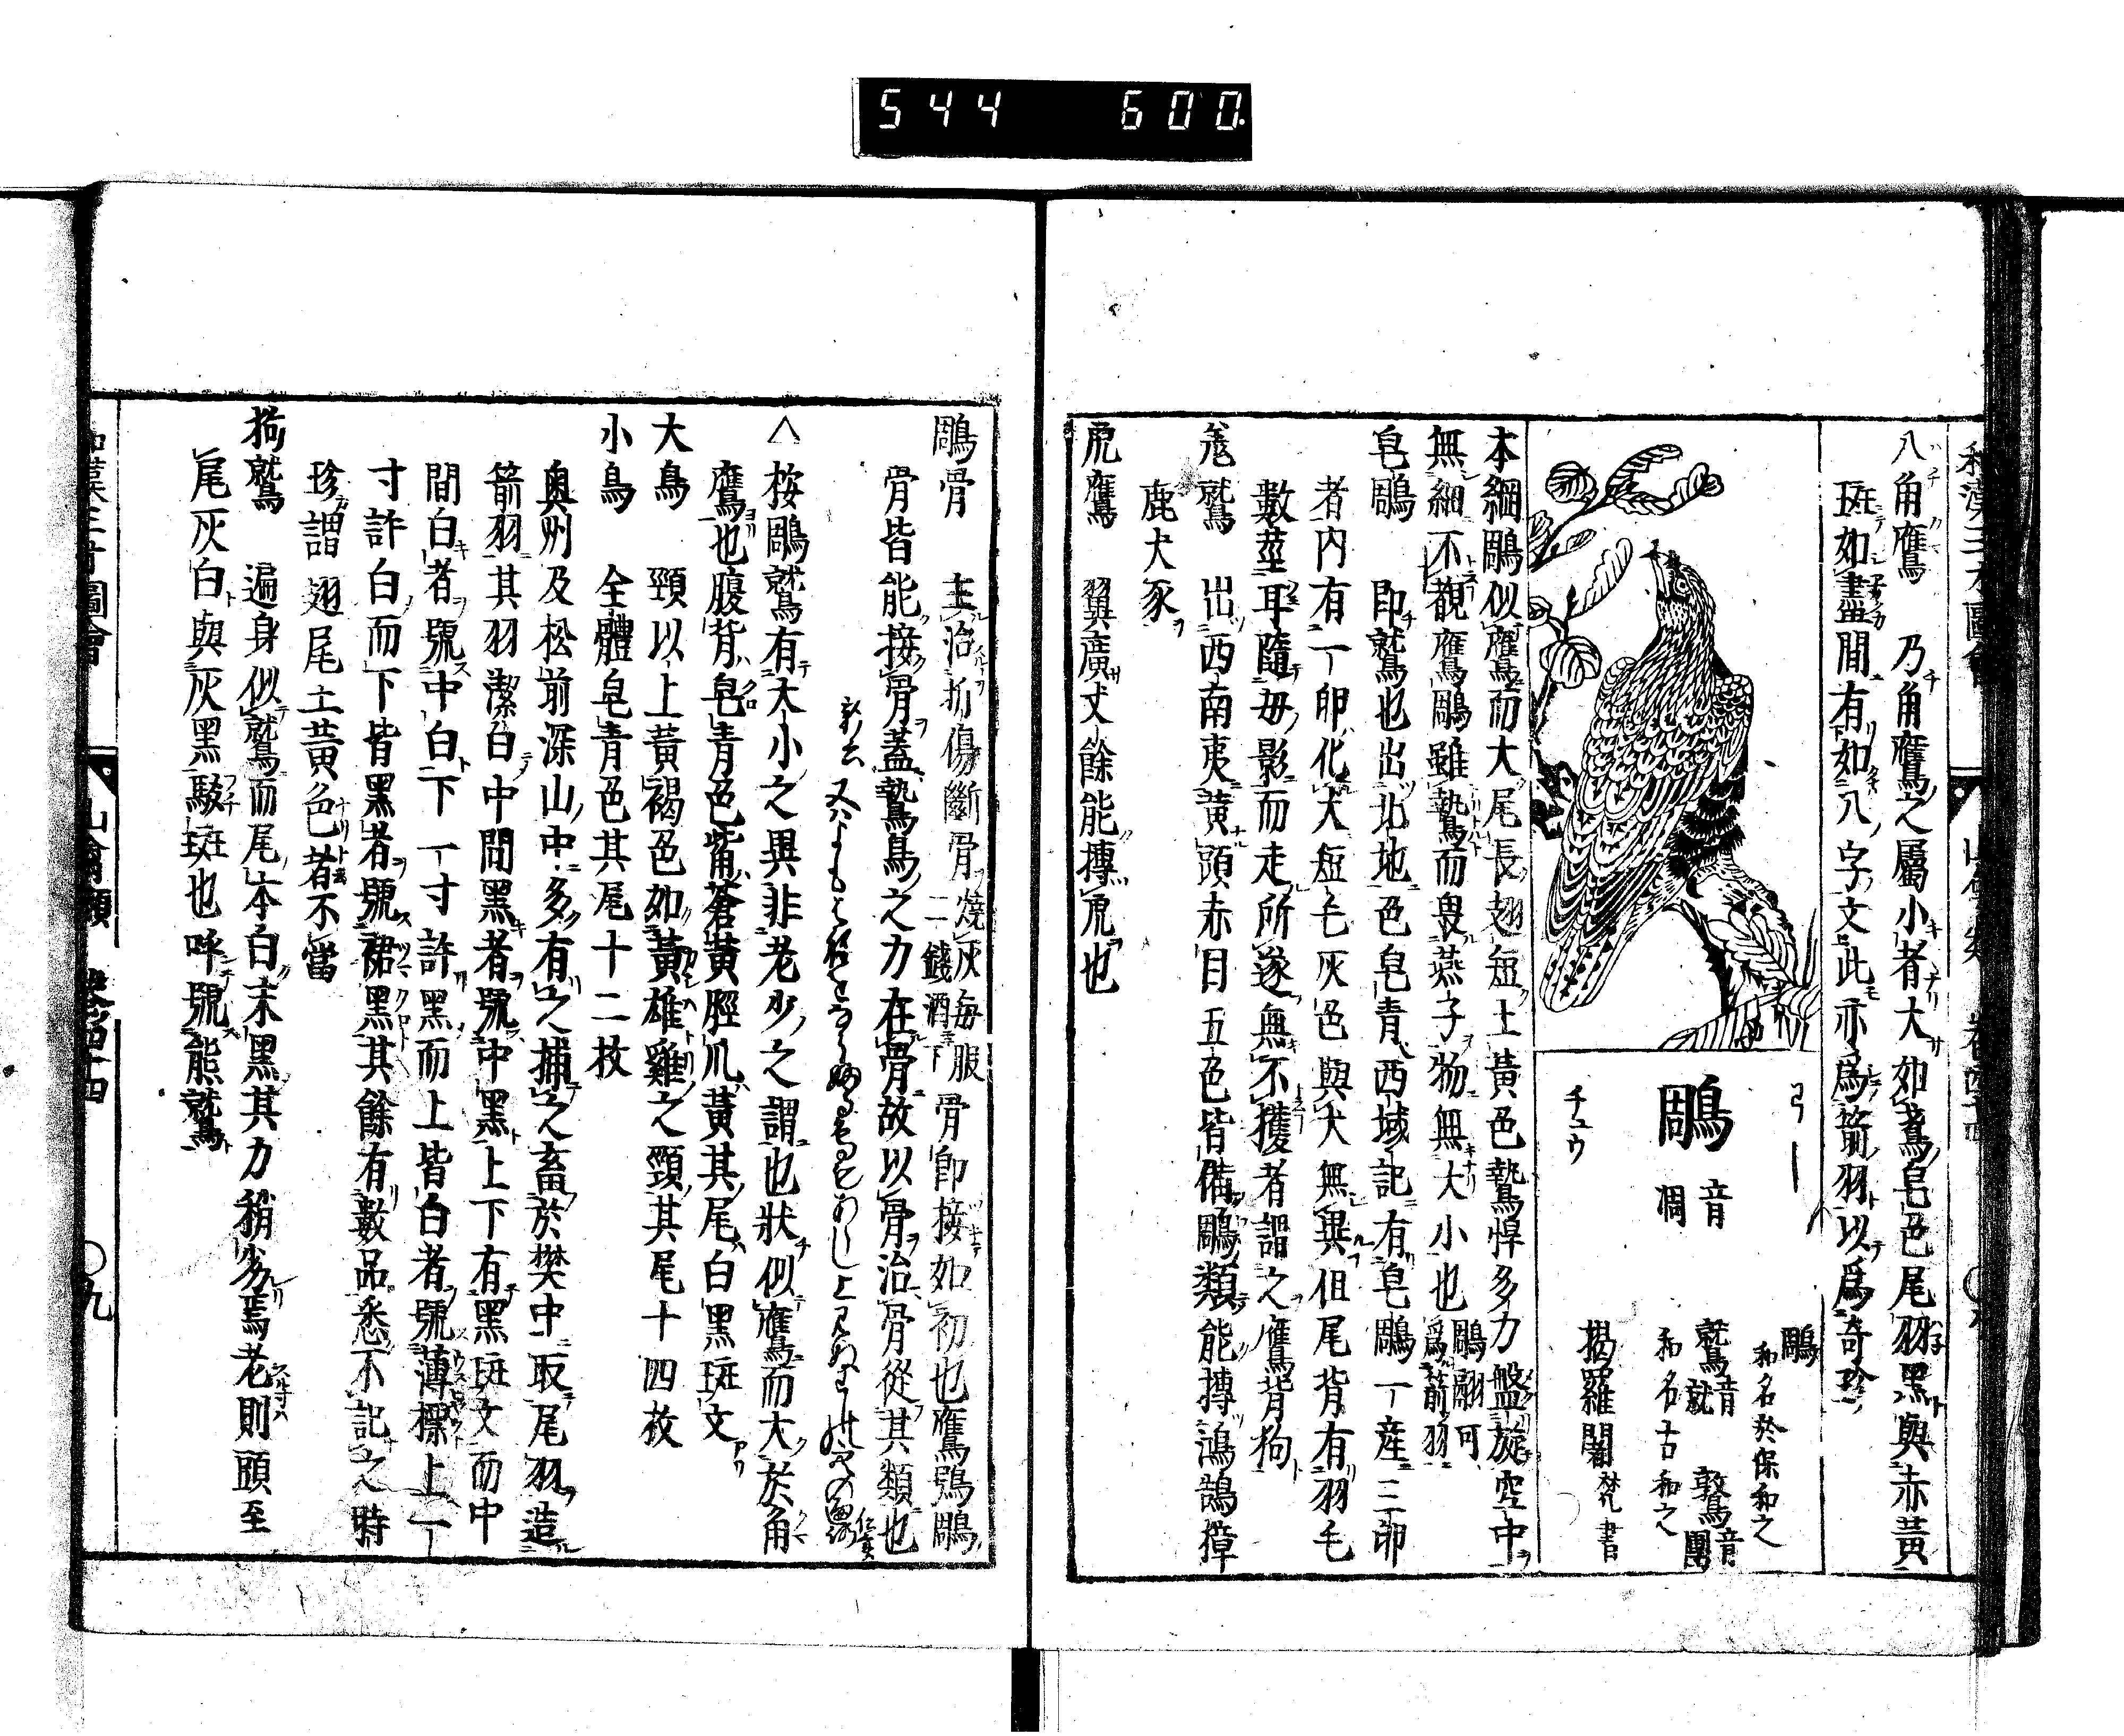 544 600
八角鷹 乃角鷹之屬小者大如鳶皂色尾羽黑與赤黃
斑如畫間有如八字文此亦爲箭羽以爲奇珍
鵰
音
凋
チュウ
鵰
和名於保和之
鷲音就 鷻音團
和名古和之
揭羅闍 梵書
本綱鵰似鷹而大尾長翅短土黃色鷙悍多力盤旋空中
無細不覩鷹鵰雖鷙而畏燕子物無大小也鵰翮可爲箭羽
皂鵰 卽鷲也出北地色皂青西域記有皂鵰一產三卵
者內有一卵化犬短毛灰色與犬無異但尾背有羽毛
數莖耳隨母影而走所逐無不獲者謂之鷹背狗
羌鷲 出西南夷黃頭赤目五色皆備鵰類能搏鴻鵠獐
鹿犬豕
虎鷹 翼廣丈餘能搏虎也
鵰骨 主治折傷斷骨燒灰每服二錢酒下骨卽接如初也鷹鶚鵰
骨皆能接骨蓋鷙鳥之力在骨故以骨治骨從其類也
△按鵰鷲有大小之異非老少之謂也狀似鷹而大於角
鷹也腹背皂青色觜蒼黃脛爪黃其尾白黑斑文
大鳥 頸以上黃褐色如黃雄雞之頸其尾十四枚
小鳥 全體皂青色其尾十二枚
奧州及松前深山中多有之捕之畜於樊中取尾羽造
箭羽其羽潔白中間黑者號中黑上下有黑斑文而中
間白者號中白下一寸許黑而上皆白者號薄標上一
寸許白而下皆黑者號裾黑其餘有數品悉不記之時
珍謂翅尾土黃色者不當
狗鷲 遍身似鷲而尾本白末黑其力稍劣焉老則頭至
尾灰白與灰黑駁斑也呼號熊鷲
山禽類
〇九